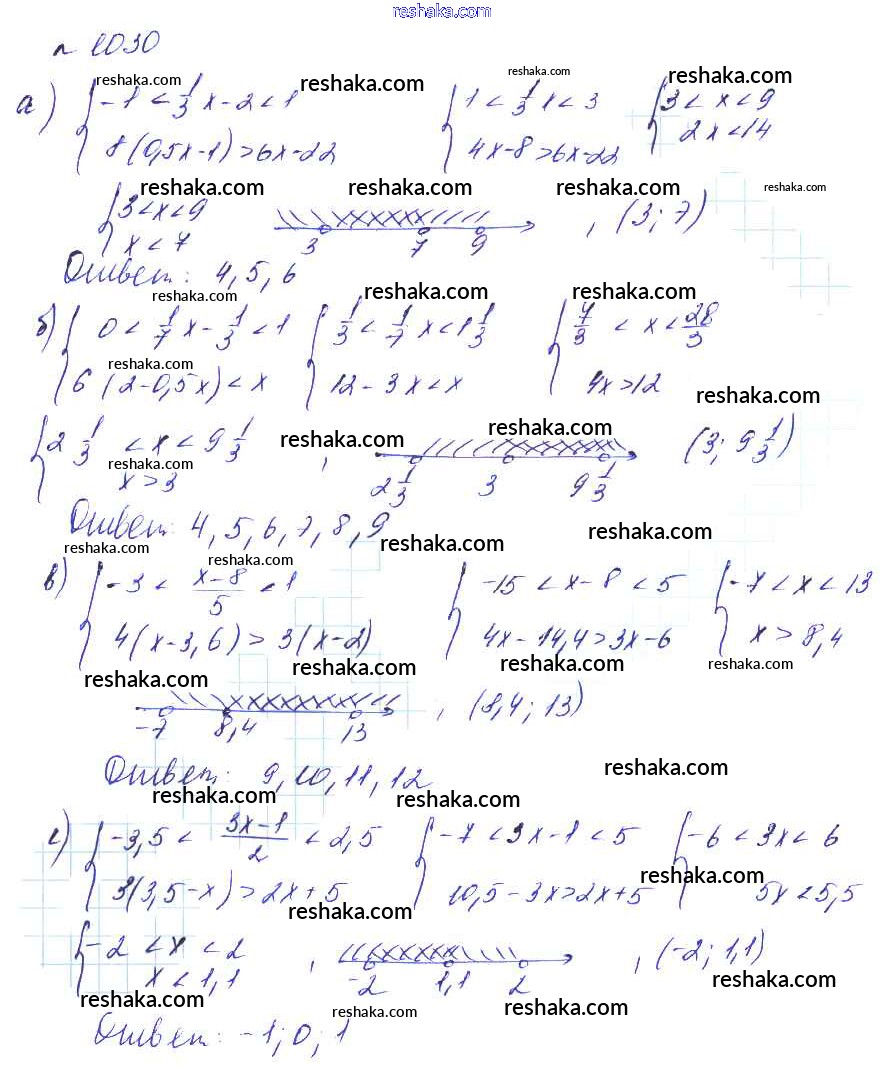 reshaka.com
№ 1030
reshaka.com reshaka.com reshaka.com reshaka.com
а) { -1 < 1/3 x - 2 < 1 { 1 < 1/3 x < 3 { 3 < x < 9
8(0,5x-1) > 6x-22 4x-8 > 6x-22 2x < 14
reshaka.com reshaka.com reshaka.com reshaka.com
{ 3 < x < 9 , (3; 7)
x < 7 3 7 9
Ответ: 4, 5, 6
reshaka.com reshaka.com reshaka.com
б) { 0 < 1/7 x - 1/3 < 1 { 1/3 < 1/7 x < 1 1/3 { 7/3 < x < 28/3
reshaka.com
6(2-0,5x) < x 12 - 3x < x 4x > 12
reshaka.com
{ 2 1/3 < x < 9 1/3 reshaka.com reshaka.com (3; 9 1/3)
reshaka.com
x > 3 , 2 1/3 3 9 1/3
Ответ: 4, 5, 6, 7, 8, 9
reshaka.com reshaka.com reshaka.com
reshaka.com
в) { -3 < x-8/5 < 1 { -15 < x - 8 < 5 { -7 < x < 13
4(x-3,6) > 3(x-2) 4x - 14,4 > 3x - 6 x > 8,4
reshaka.com reshaka.com reshaka.com reshaka.com
-7 8,4 13 , (8,4; 13)
Ответ: 9, 10, 11, 12
reshaka.com reshaka.com reshaka.com
г) { -3,5 < 3x-1/2 < 2,5 { -7 < 3x-1 < 5 { -6 < 3x < 6
reshaka.com
3(3,5-x) > 2x+5 10,5 - 3x > 2x+5 5x < 5,5
reshaka.com reshaka.com
{ -2 < x < 2 , (-2; 1,1)
x < 1,1 , -2 1,1 2
reshaka.com reshaka.com reshaka.com reshaka.com
Ответ: -1; 0; 1